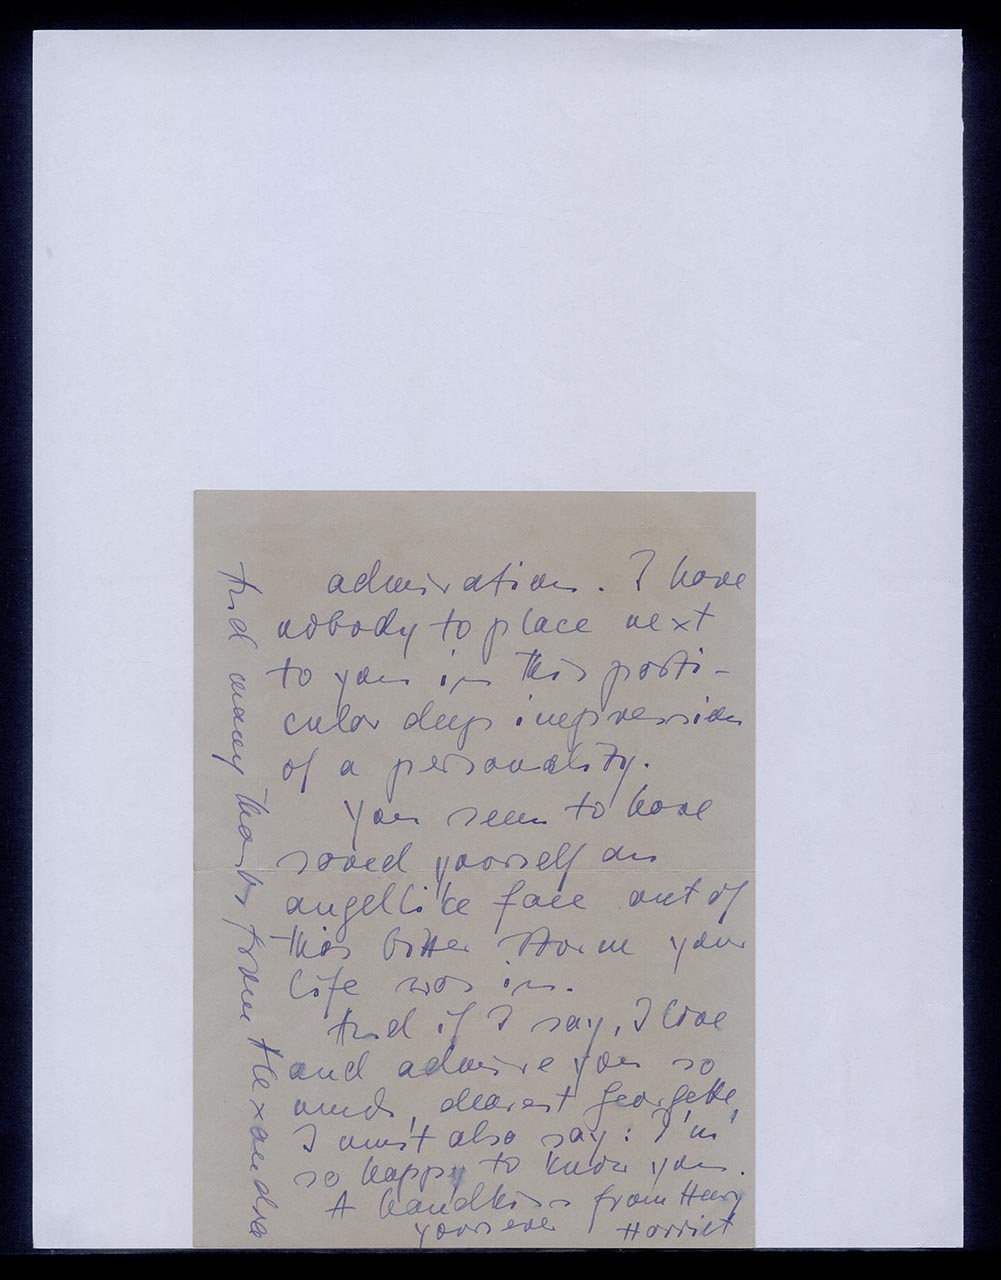 admiration. I have
nobody to place next
to you in this parti-
cular deep impression
of a personality.
You seem to have
saved yourself an
angellike face out of
this bitter storm your
life was in.
And if I say, I love
and admire you so
much, dearest Georgette,
I must also say: I'm
so happy to know you.
A handkiss from Henry
yours ever Harriet
And many thanks from Alexandra